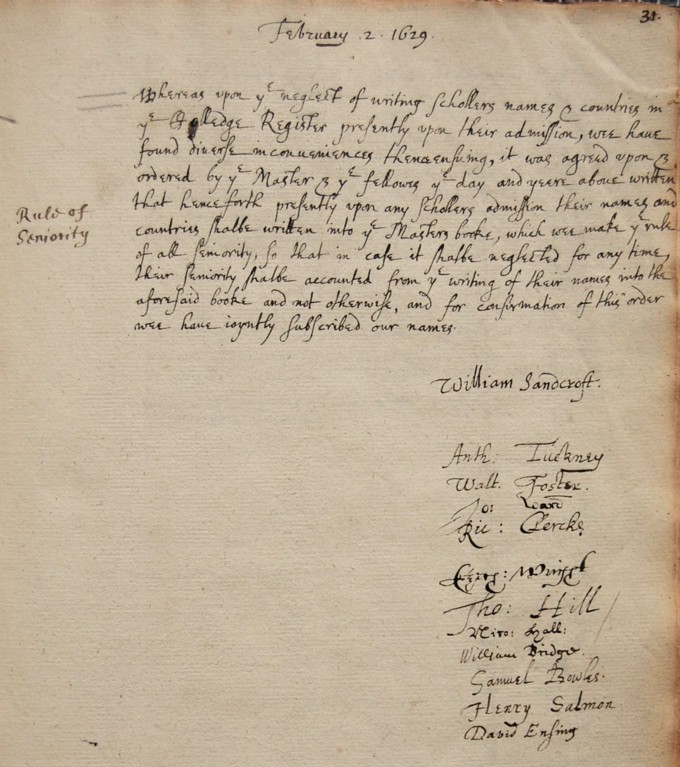 31.
February . 2 . 1629.
Whereas upon yᵉ neglect of writing schollers names & countries in
yᵉ Colledge Register presently upon their admission, wee have
found diverse inconveniences thence ensuing, it was agreed upon &
ordered by yᵉ Master & yᵉ fellowes yᵉ day and yeere above written
that henceforth presently upon any schollers admission their names and
countries shalbe written into yᵉ Masters booke, which wee make yᵉ rule
of all seniority, so that in case it shalbe neglected for any time,
their seniority shalbe accounted from yᵉ writing of their names into the
aforesaid booke and not otherwise, and for confirmation of this order
wee have ioyntly subscribed our names.
Rule of
Seniority
William Sandcroft.
Anth: Tuckney
Walt. Foster.
Jo:
Ric: Clercke
Tho: Hill
Hall:
William Bridge.
Samuel Bowles.
Henry Salmon
David Ensing